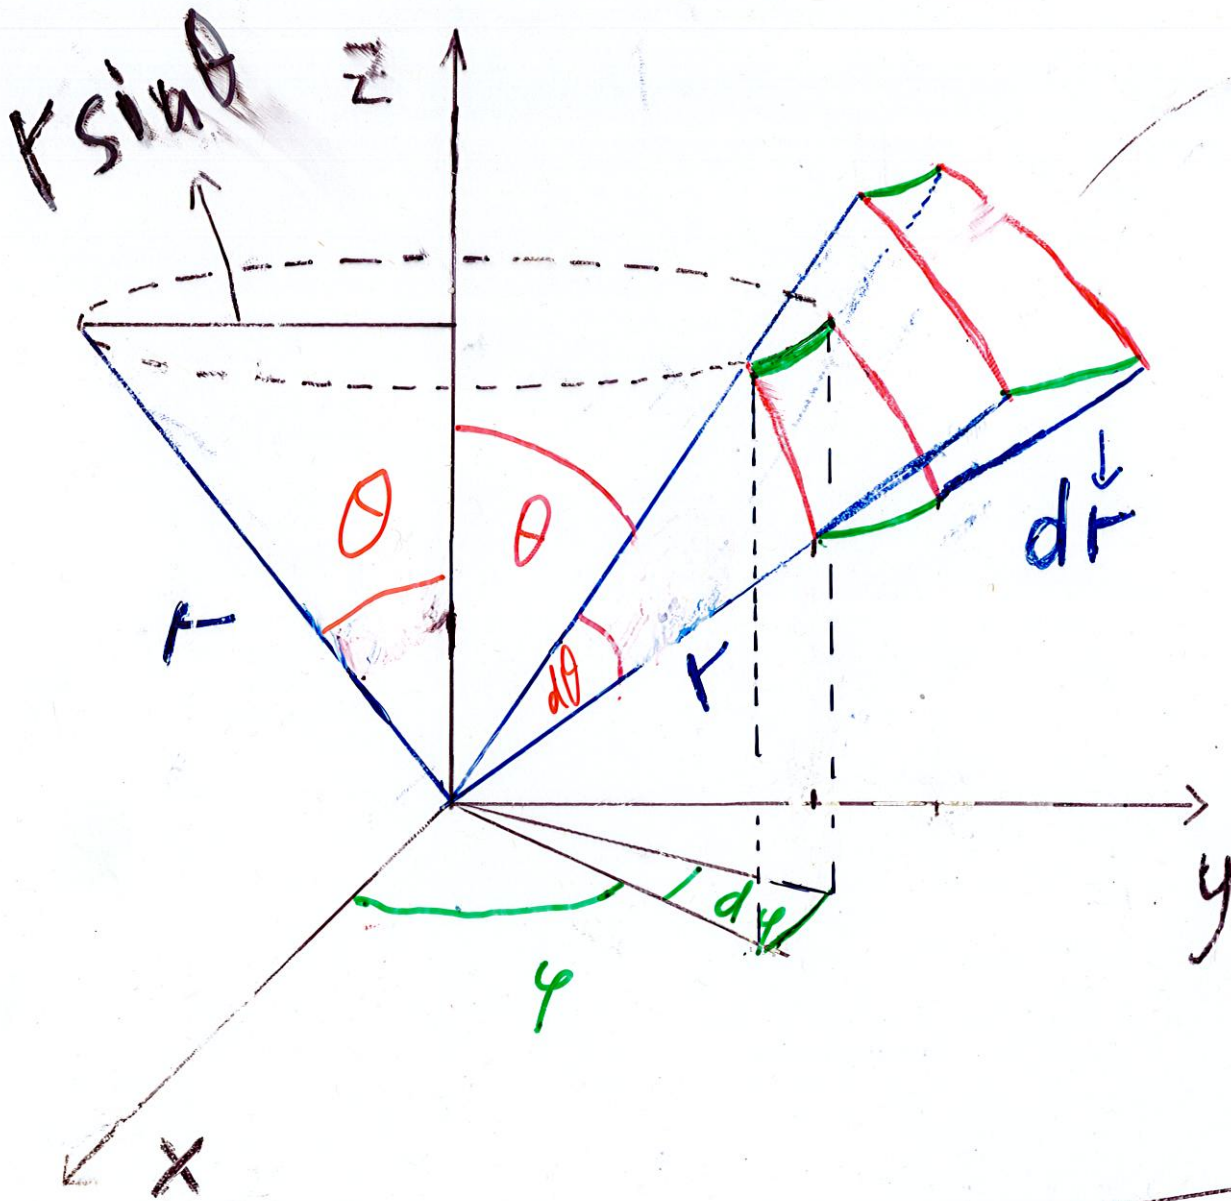 r sinθ
z
θ
θ
r
dθ
r
dr
dφ
φ
y
x